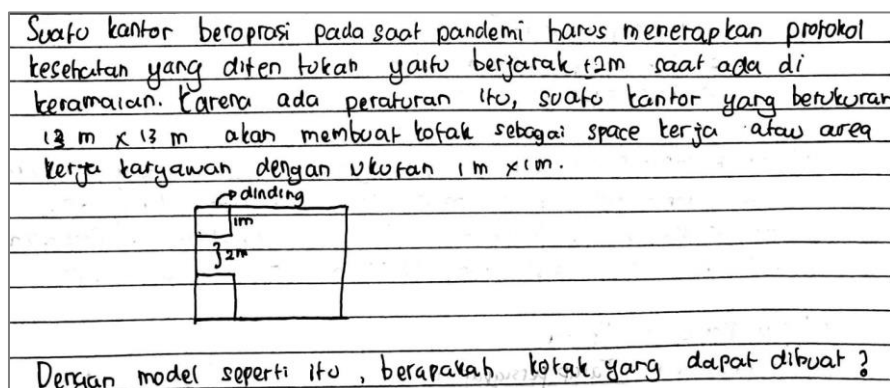 Suatu kantor beroprasi pada saat pandemi harus menerapkan protokol
kesehatan yang diten tukan yaitu berjarak ±2m saat ada di
keramaian. Karena ada peraturan itu, suatu kantor yang berukuran
13 m x 13 m akan membuat kotak sebagai space kerja atau area
kerja karyawan dengan ukuran 1m x 1m.
dinding
1m
2m
Dengan model seperti itu, berapakah kotak yang dapat dibuat?